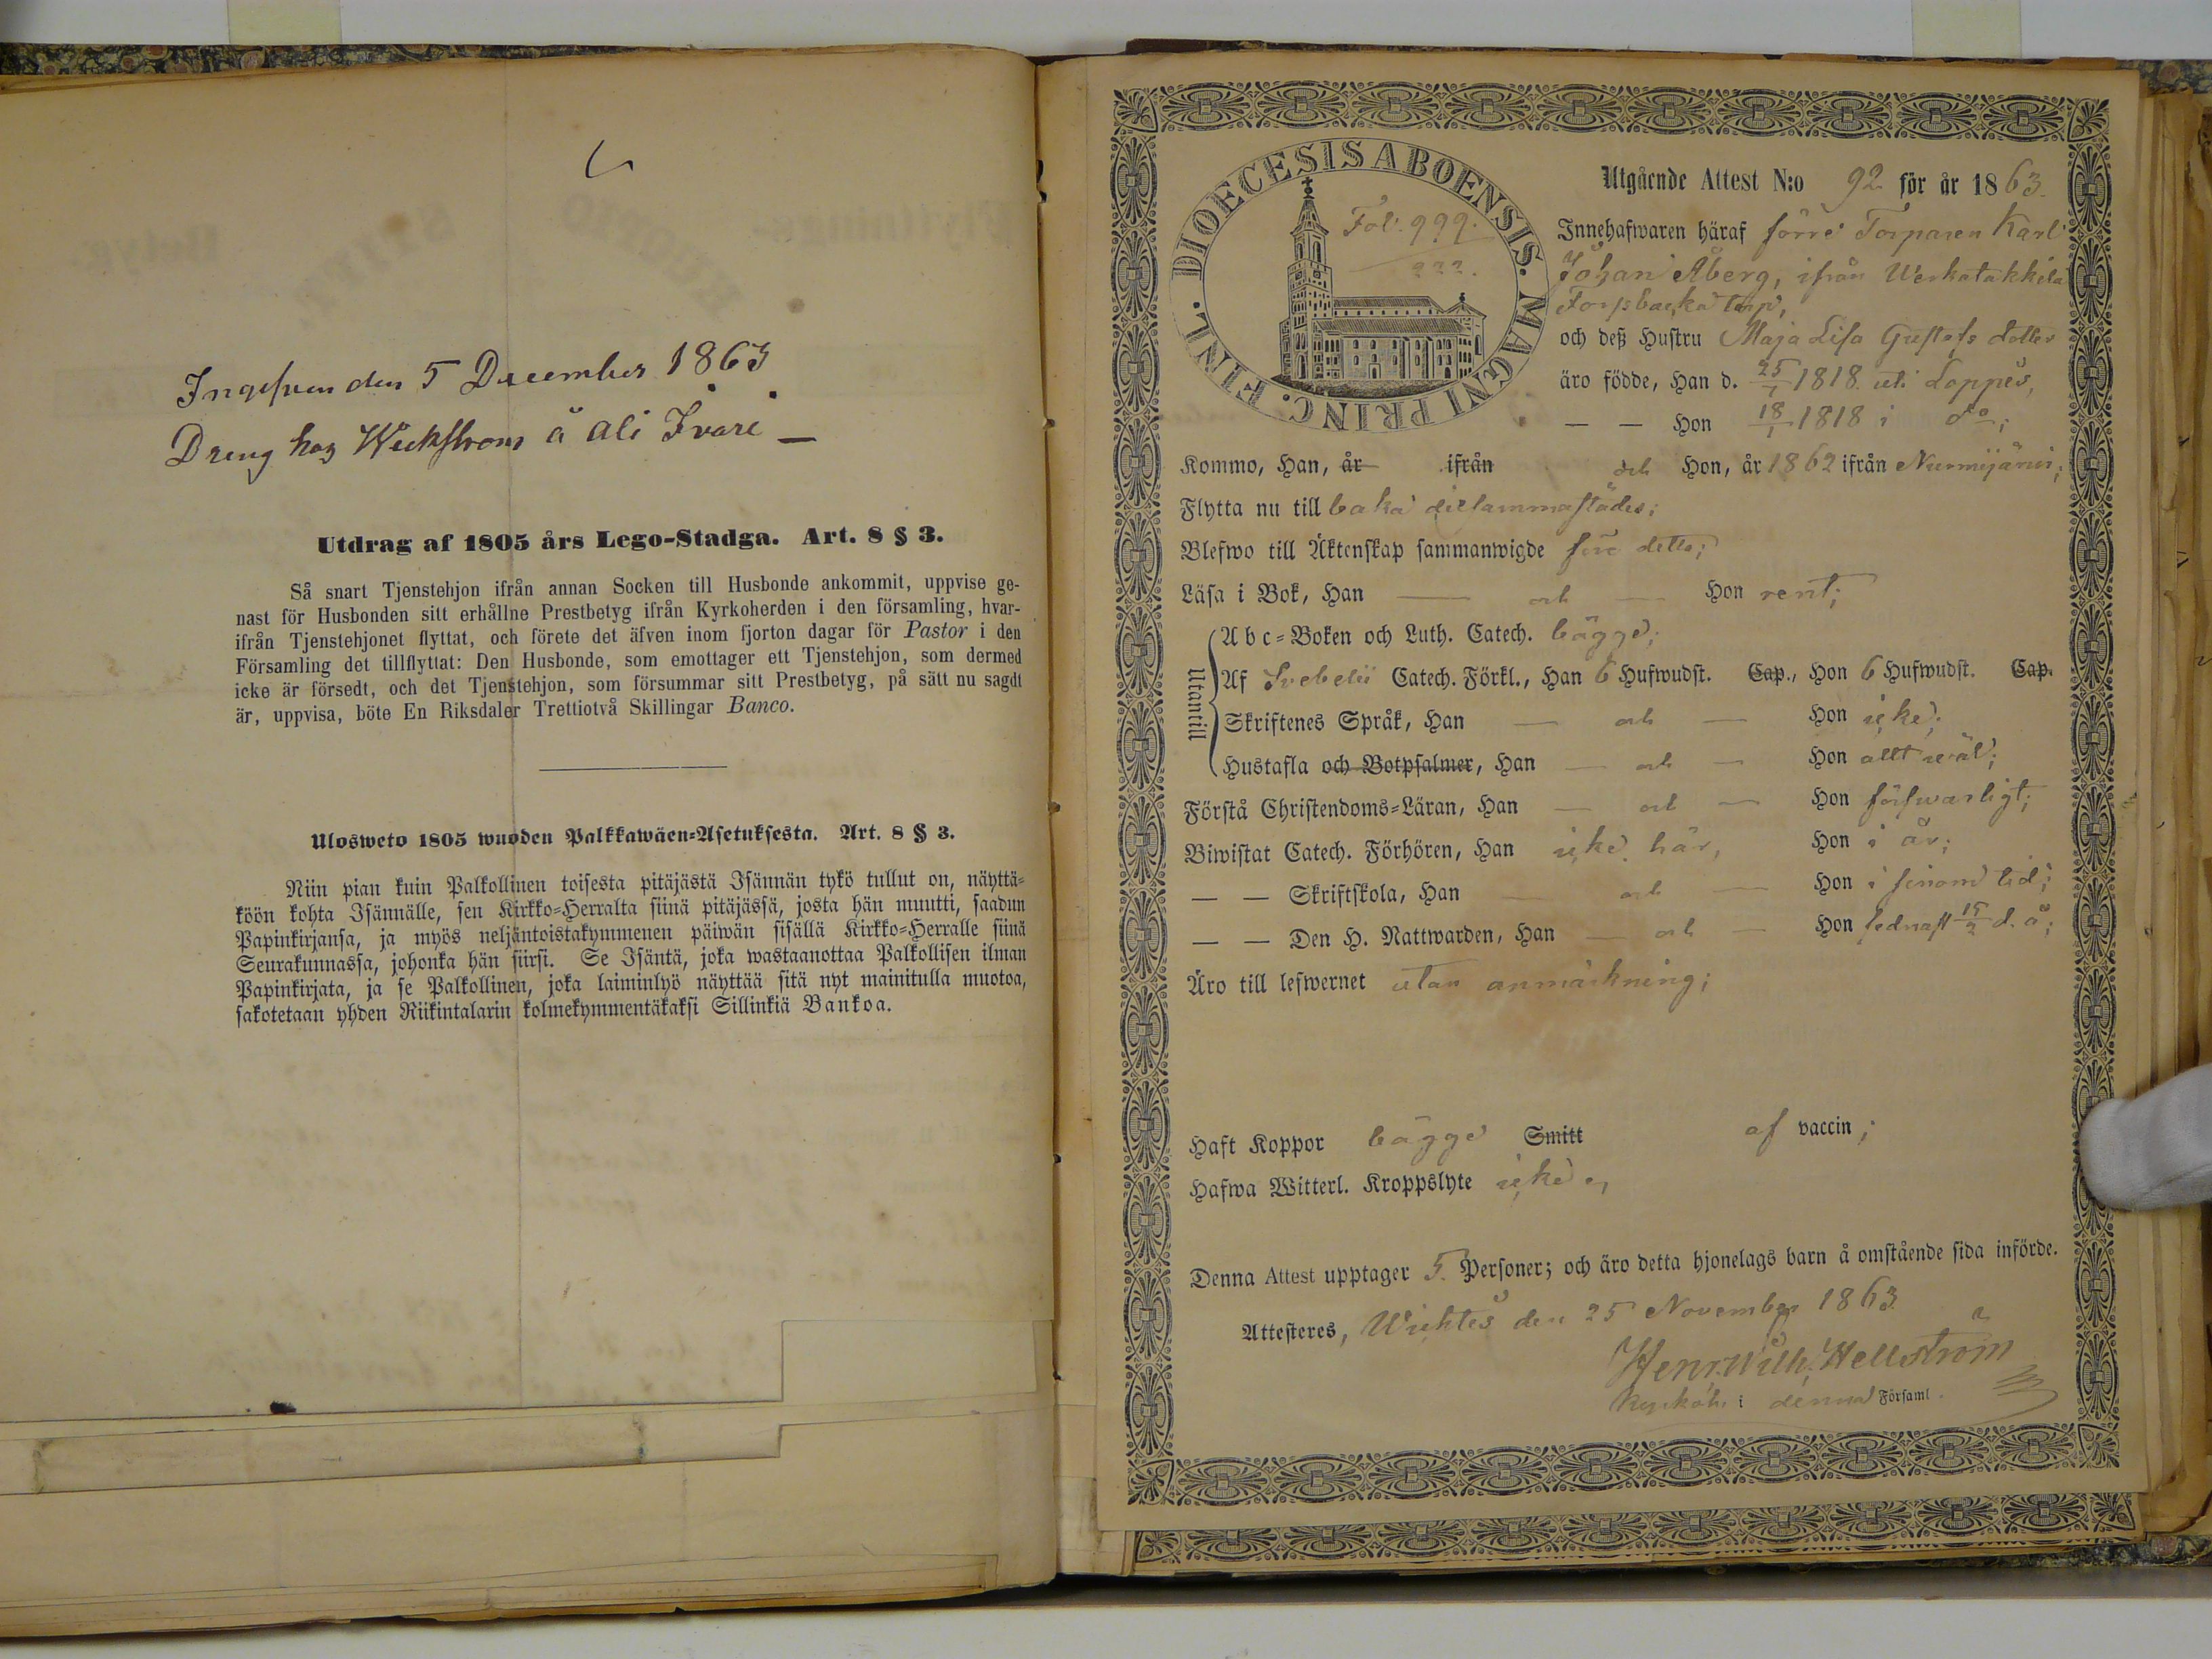 Ingifven den 5 December 1863
Dreng hos Weckström å Ali Ivari
Utdrag af 1805 års Lego-Stadga. Art. 8 § 3.
Så snart Tjenstehjon ifrån annan Socken till Husbonde ankommit, uppvise ge-
nast för Husbonden sitt erhållne Prestbetyg ifrån Kyrkoherden i den församling, hvar-
ifrån Tjenstehjonet flyttat, och förete det äfven inom fjorton dagar för Pastor i den
Församling det tillflyttat: Den Husbonde, som emottager ett Tjenstehjon, som dermed
icke är försedt, och det Tjenstehjon, som försummar sitt Prestbetyg, på sätt nu sagdt
är, uppvisa, böte En Riksdaler Trettiotvå Skillingar Banco.
Ulosweto 1805 wuoden Palkkawäen=Asetuksesta. Art. 8 § 3.
Niin pian kuin Palkollinen toisesta pitäjästä Isännän tykö tullut on, näyttä=
köön kohta Isännälle, sen Kirkko=Herralta siinä pitäjässä, josta hän muutti, saadun
Papinkirjansa, ja myös neljäntoistakymmenen päiwän sisällä Kirkko=Herralle siinä
Seurakunnassa, johonka hän siirsi. Se Isäntä, joka wastaanottaa Palkollisen ilman
Papinkirjata, ja se Palkollinen, joka laiminlyö näyttää sitä nyt mainitulla muotoa,
sakotetaan yhden Riikintalarin kolmekymmentäkaksi Sillinkiä Bankoa.
DIOECESIS ABOENSIS. MAGNI PRINC. FINL.
Fol. 999.
222.
Utgående Attest N:o 92 för år 1863.
Innehafwaren häraf förre Torparen Karl
Johan Åberg, ifrån Werkatakkila
Forsbacka torp,
och deß Hustru Maja Lisa Gustafs dotter
äro födde, Han d. 25/1 1818 uti Loppis,
— — Hon 18/1 1818 i do;
Kommo, Han, år ifrån och Hon, år 1862 ifrån Nurmijärvi;
Flytta nu till baka ditsammastädes;
Blefwo till Äktenskap sammanwigde före detta;
Läsa i Bok, Han — och — Hon rent;
Utantill
Abc=Boken och Luth. Catech. bägge;
Af Svebelii Catech. Förkl., Han 6 Hufwudst. Cap., Hon 6 Hufwudst. Cap.
Skriftenes Språk, Han — och — Hon icke;
Hustafla och Botpsalmer, Han — och — Hon allt wäl;
Förstå Christendoms=Läran, Han — och — Hon försvarligt;
Biwistat Catech. Förhören, Han icke här, Hon i år;
— — Skriftskola, Han — och — Hon i sinom tid;
— — Den H. Nattwarden, Han — och — Hon sednast 15/2 d. å;
Äro till lefwernet utan anmärkning;
Haft Koppor bägge Smitt af vaccin;
Hafwa Witterl. Kroppslyte icke
Denna Attest upptager 5. Personer; och äro detta hjonelags barn å omstående sida införde.
Attesteres, Wichtis den 25 November 1863
Henr. Wilh. Hellström
Kyrkoh. i denna Församl.